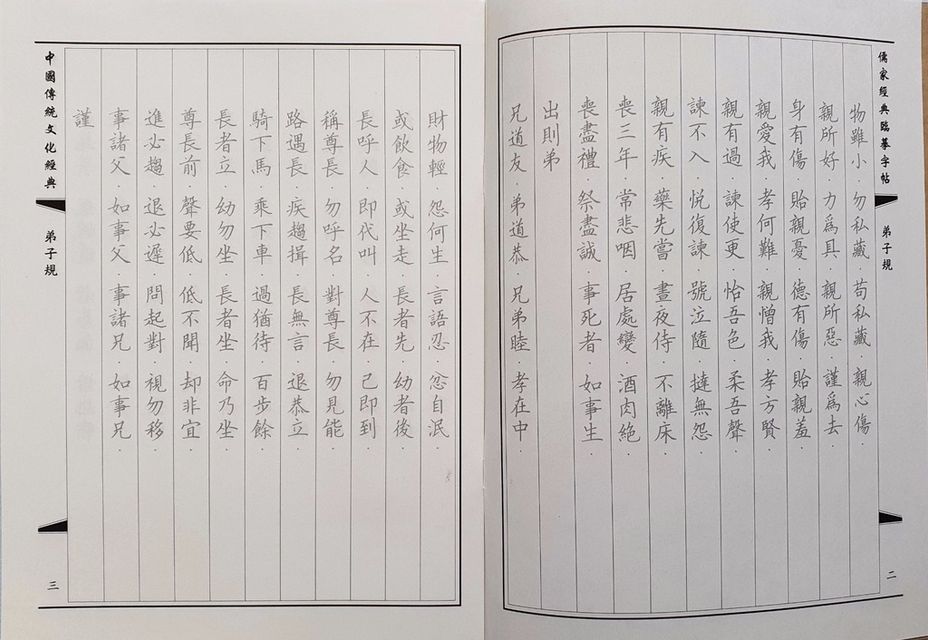 儒家經典臨摹字帖
弟子規
二
物雖小．勿私藏．苟私藏．親心傷．
親所好．力爲具．親所惡．謹爲去．
身有傷．貽親憂．德有傷．貽親羞．
親愛我．孝何難．親憎我．孝方賢．
親有過．諫使更．怡吾色．柔吾聲．
諫不入．悦復諫．號泣隨．撻無怨．
親有疾．藥先嘗．晝夜侍．不離床．
喪三年．常悲咽．居處變．酒肉絕．
喪盡禮．祭盡誠．事死者．如事生．
出則弟
兄道友．弟道恭．兄弟睦．孝在中．
財物輕．怨何生．言語忍．忿自泯．
或飲食．或坐走．長者先．幼者後．
長呼人．即代叫．人不在．己即到．
稱尊長．勿呼名．對尊長．勿見能．
路遇長．疾趨揖．長無言．退恭立．
騎下馬．乘下車．過猶待．百步餘．
長者立．幼勿坐．長者坐．命乃坐．
尊長前．聲要低．低不聞．却非宜．
進必趨．退必遲．問起對．視勿移．
事諸父．如事父．事諸兄．如事兄．
謹
中國傳統文化經典
弟子規
三